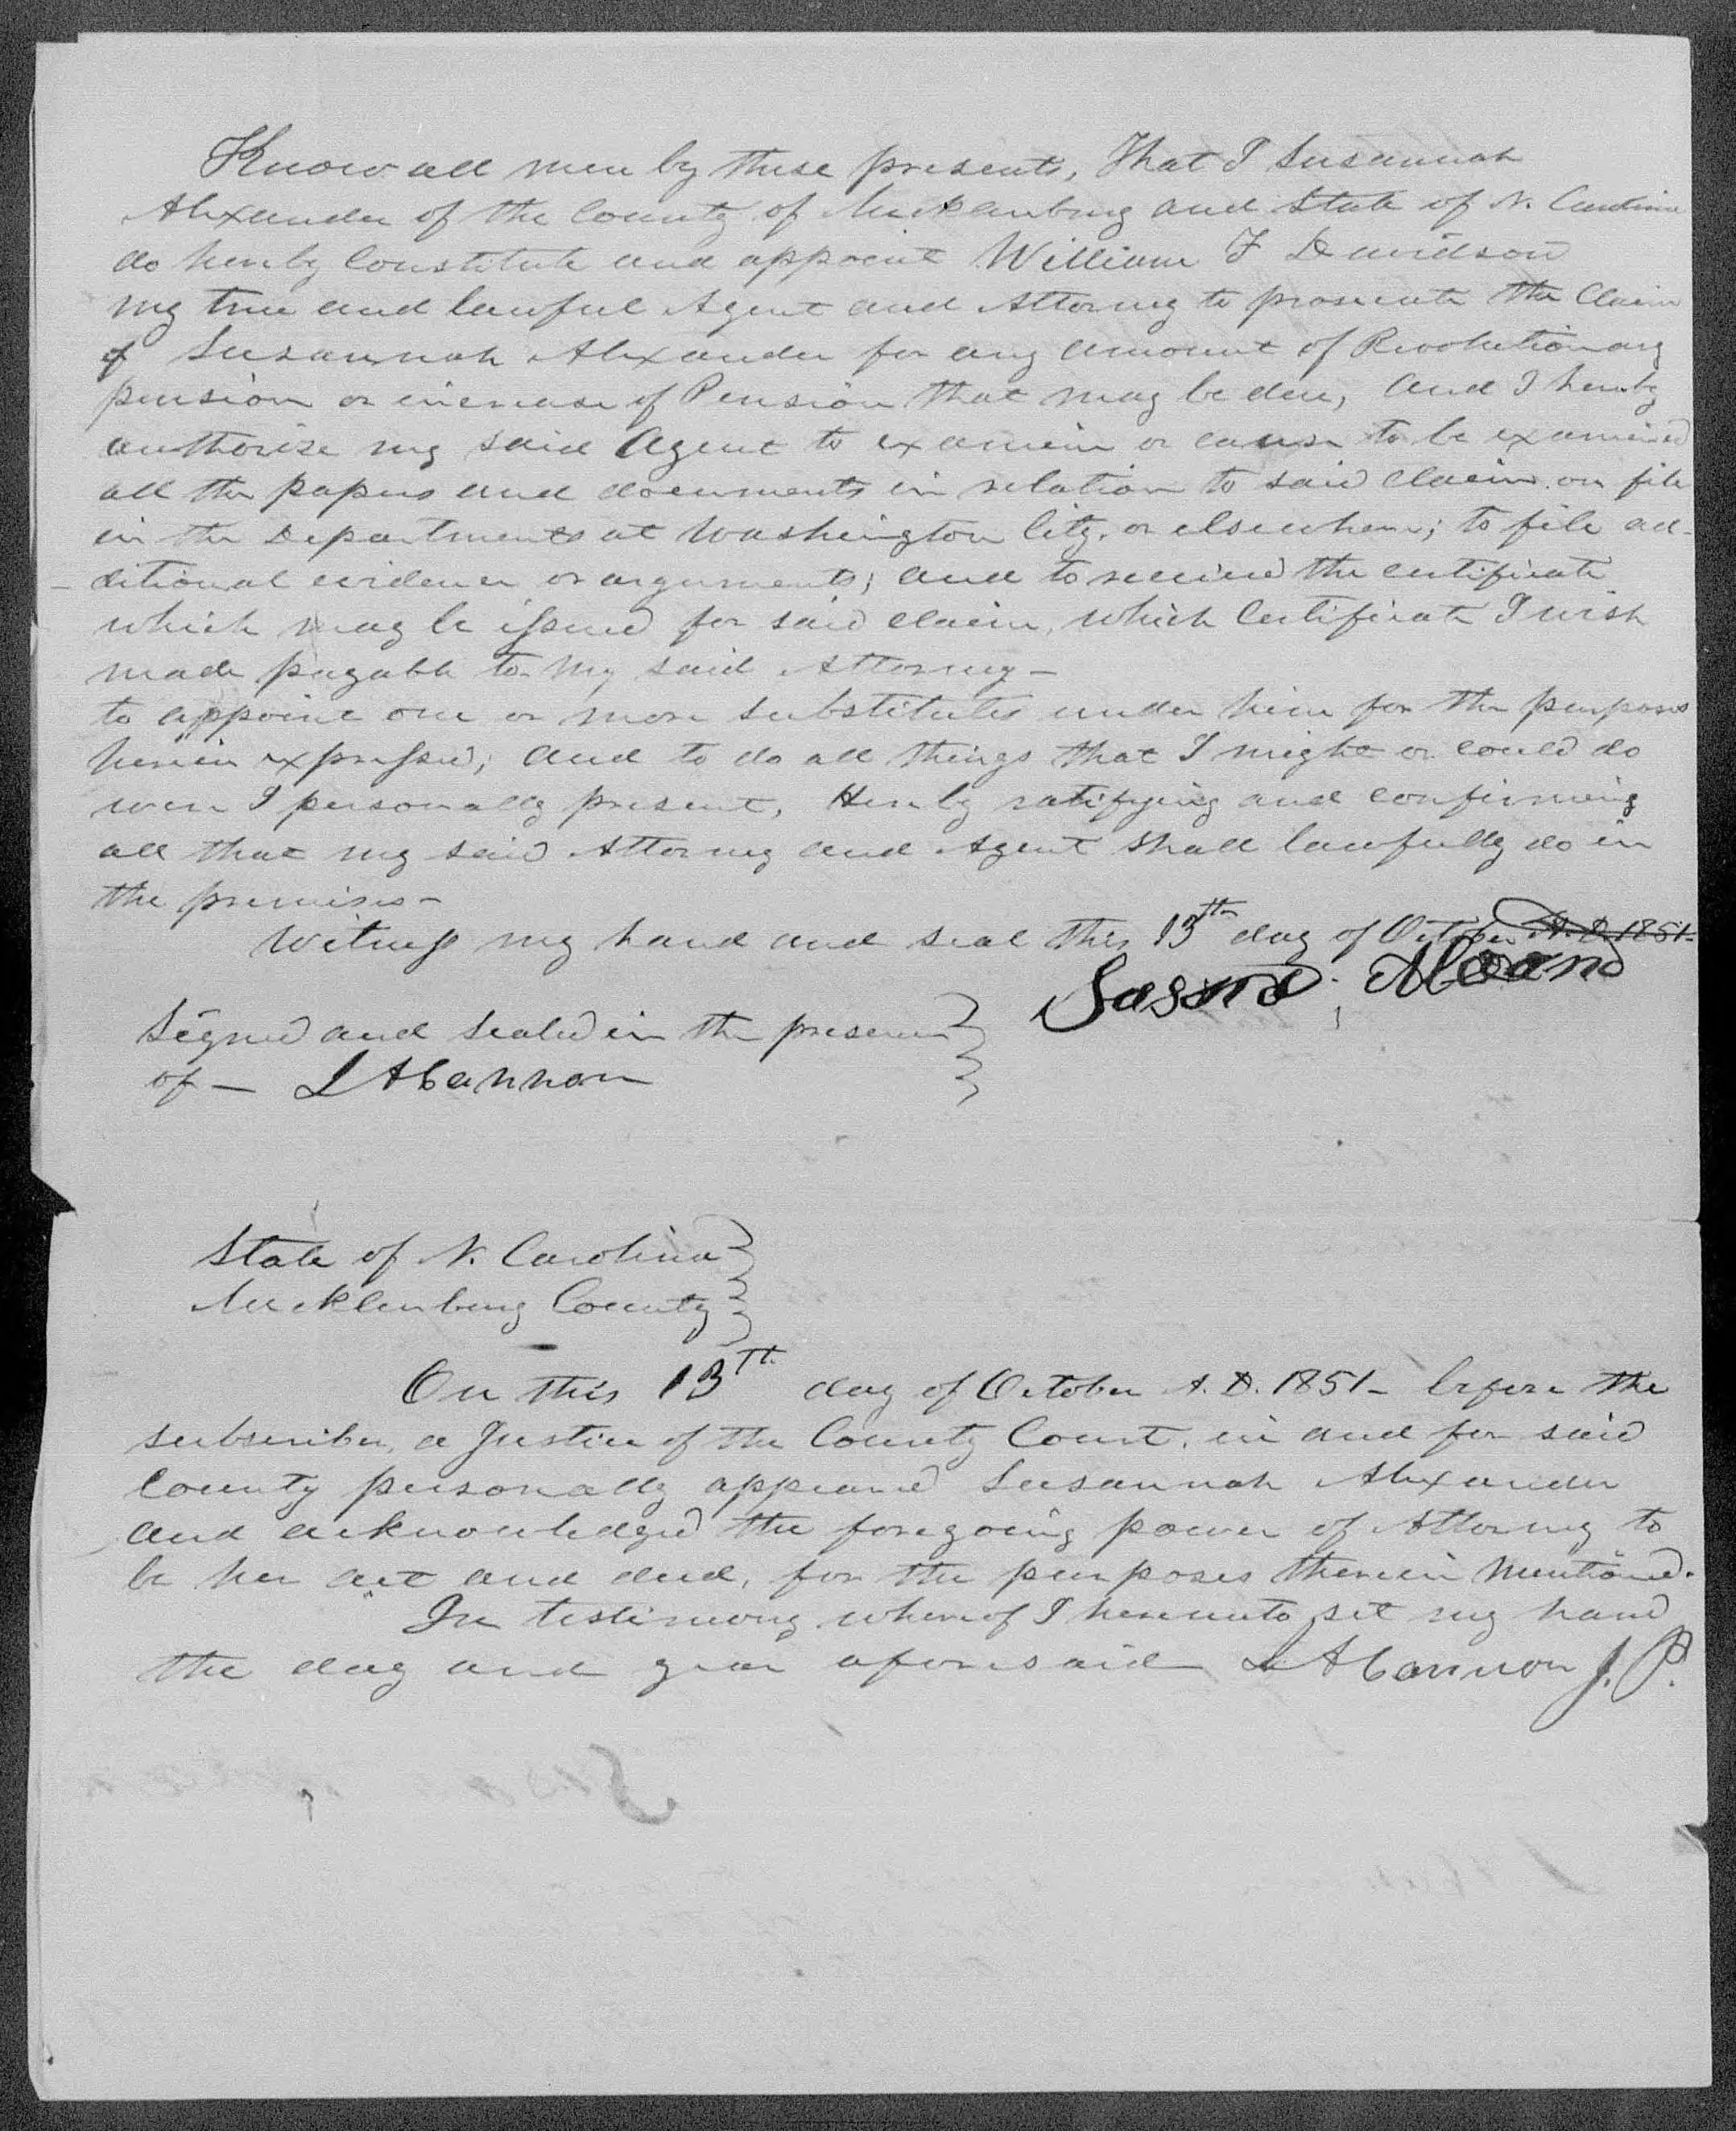 Know all men by these presents, That I Susannah
Alexander of the County of Mecklenburg and State of N. Carolina
do hereby Constitute and appoint William F Davidson
my true and lawful Agent and Attorney to prosecute the Claim
of Susannah Alexander for any amount of Revolutionary
pension or increase of Pension that may be due, and I hereby
authorise my said Agent to examine or cause to be examined
all the papers and documents in relation to said claim on file
in the Departments at Washington City, or elsewhere; to file ad-
-ditional evidence or arguments; and to receive the certificate
which may be issued for said claim, which Certificate I wish
made payable to my said Attorney -
to appoint one or more substitutes under him for the purposes
herein expressed; and to do all things that I might or could do
were I personally present, Hereby ratifying and confirming
all that my said Attorney and Agent shall lawfully do in
the premises -
Witness my hand and seal this 13th day of October A. D. 1851-
Signed and Sealed in the presence
of - L A Cannon
State of N. Carolina
Mecklenburg County
On this 13th day of October A. D. 1851 - before the
subscriber, a Justice of the County Court, in and for said
County personally appeared Susannah Alexander
and acknowledged the foregoing power of Attorney to
be her act and deed, for the purposes therein mentioned.
In testimony whereof I hereunto set my hand
the day and year aforesaid L A Cannon J. P.